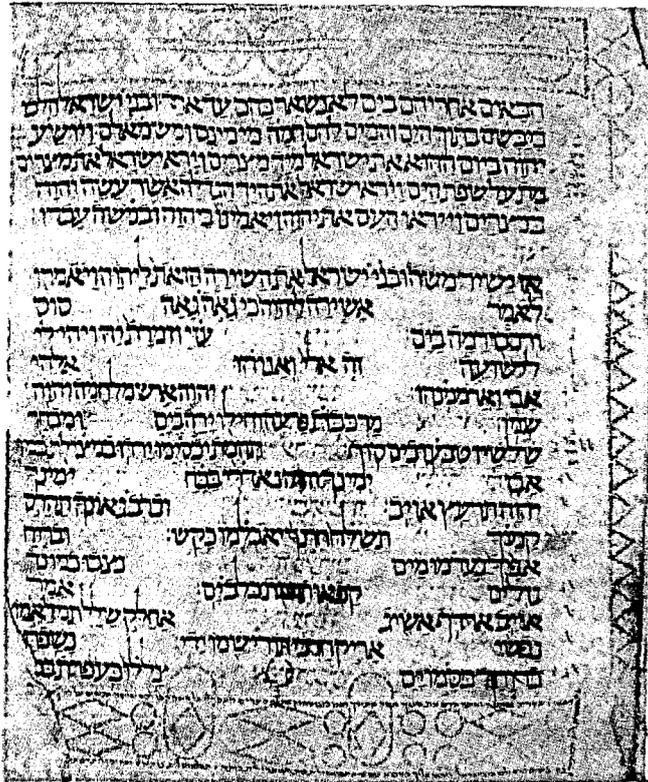 הבאים אחריהם בים לא נשאר בהם עד אחד ובני ישראל הלכו
ביבשה בתוך הים והמים להם חמה מימינם ומשמאלם ויושע
יהוה ביום ההוא את ישראל מיד מצרים וירא ישראל את מצרים
מת על שפת הים וירא ישראל את היד הגדלה אשר עשה יהוה
במצרים וייראו העם את יהוה ויאמינו ביהוה ובמשה עבדו
אז ישיר משה ובני ישראל את השירה הזאת ליהוה ויאמרו
לאמר אשירה ליהוה כי גאה גאה סוס
ורכבו רמה בים עזי וזמרת יה ויהי לי
לישועה זה אלי ואנוהו אלהי
אבי וארממנהו יהוה איש מלחמה יהוה
שמו מרכבת פרעה וחילו ירה בים ומבחר
שלשיו טבעו בים סוף תהמת יכסימו ירדו במצולת כמו
אבן ימינך יהוה נאדרי בכח ימינך
יהוה תרעץ אויב וברב גאונך תהרס
קמיך תשלח חרנך יאכלמו כקש וברוח
אפיך נערמו מים נצבו כמו נד
נזלים קפאו תהמת בלב ים אמר
אויב ארדף אשיג אחלק שלל תמלאמו
נפשי אריק חרבי תורישמו ידי נשפת
ברוחך כסמו ים צללו כעפרת במי